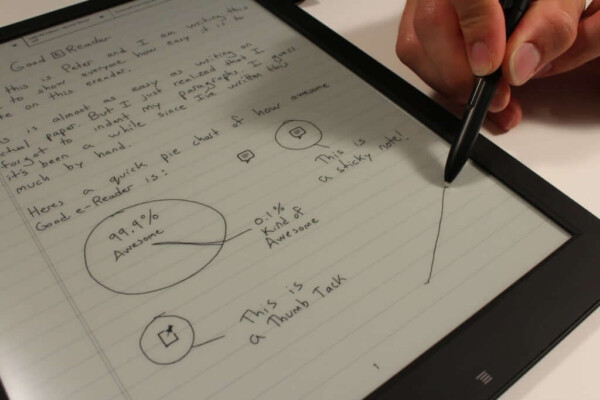 Good e Reader
this is Peter and I am writing this
to show everyone how easy it is to
on this ereader.
is almost as easy as writing on
actual paper. But I just realized that I
forgot to indent my paragraphs, I guess
it's been a while since I've written this
much by hand.
Heres a quick pie chart of how awesome
Good e-Reader is:
99.9%
Awesome
0.1%
Kind of
Awesome
This is
a sticky note!
This is
a Thumb Tack
1